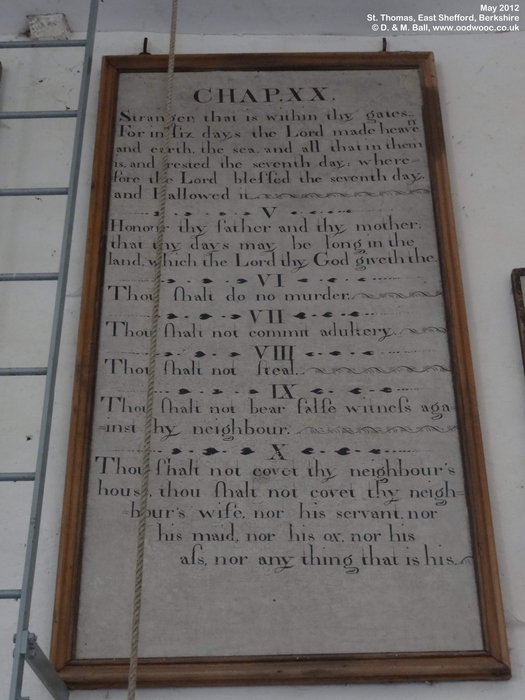 May 2012
St. Thomas, East Shefford, Berkshire
© D. & M. Ball, www.oodwooc.co.uk
CHAP. XX.
Stranger that is within thy gates
For in ſix days the Lord made heaven
and earth, the sea, and all that in them
is, and rested the seventh day, where-
fore the Lord bleſſed the seventh day,
and Hallowed it.
V
Honour thy father and thy mother:
that thy days may be long in the
land, which the Lord thy God giveth the.
VI
Thou ſhalt do no murder.
VII
Thou ſhalt not commit adultery.
VIII
Thou ſhalt not ſteal.
IX
Thou ſhalt not bear falſe witneſs aga-
=inst thy neighbour.
X
Thou ſhalt not covet thy neighbour's
house, thou ſhalt not covet thy neigh=
=bour's wife, nor his servant, nor
his maid, nor his ox, nor his
aſs, nor any thing that is his.